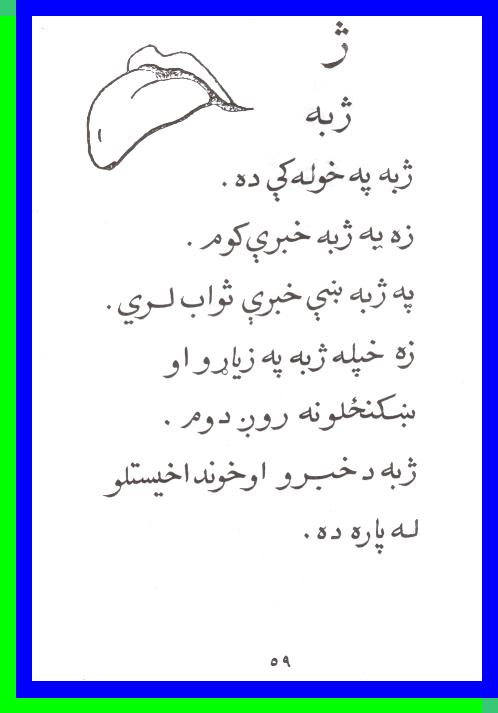 ژ
ژبه
ژبه په خوله کې ده .
زه په ژبه خبرې کوم .
په ژبه ښې خبرې ثواب لري .
زه خپله ژبه په زياړو او
ښکنځلونه روږدوم .
ژبه د خبرو او خوند اخيستلو
له پاره ده .
٥٩